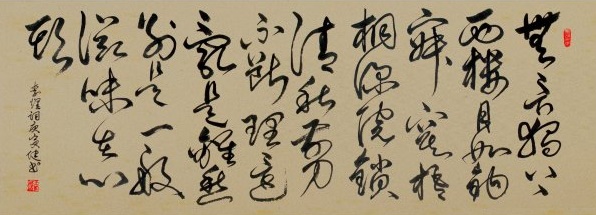 無言獨上
西樓月如鉤
寂寞梧
桐深院鎖
清秋剪
不斷理還
亂是離愁
别是一般
滋味在心
頭
李煜詞